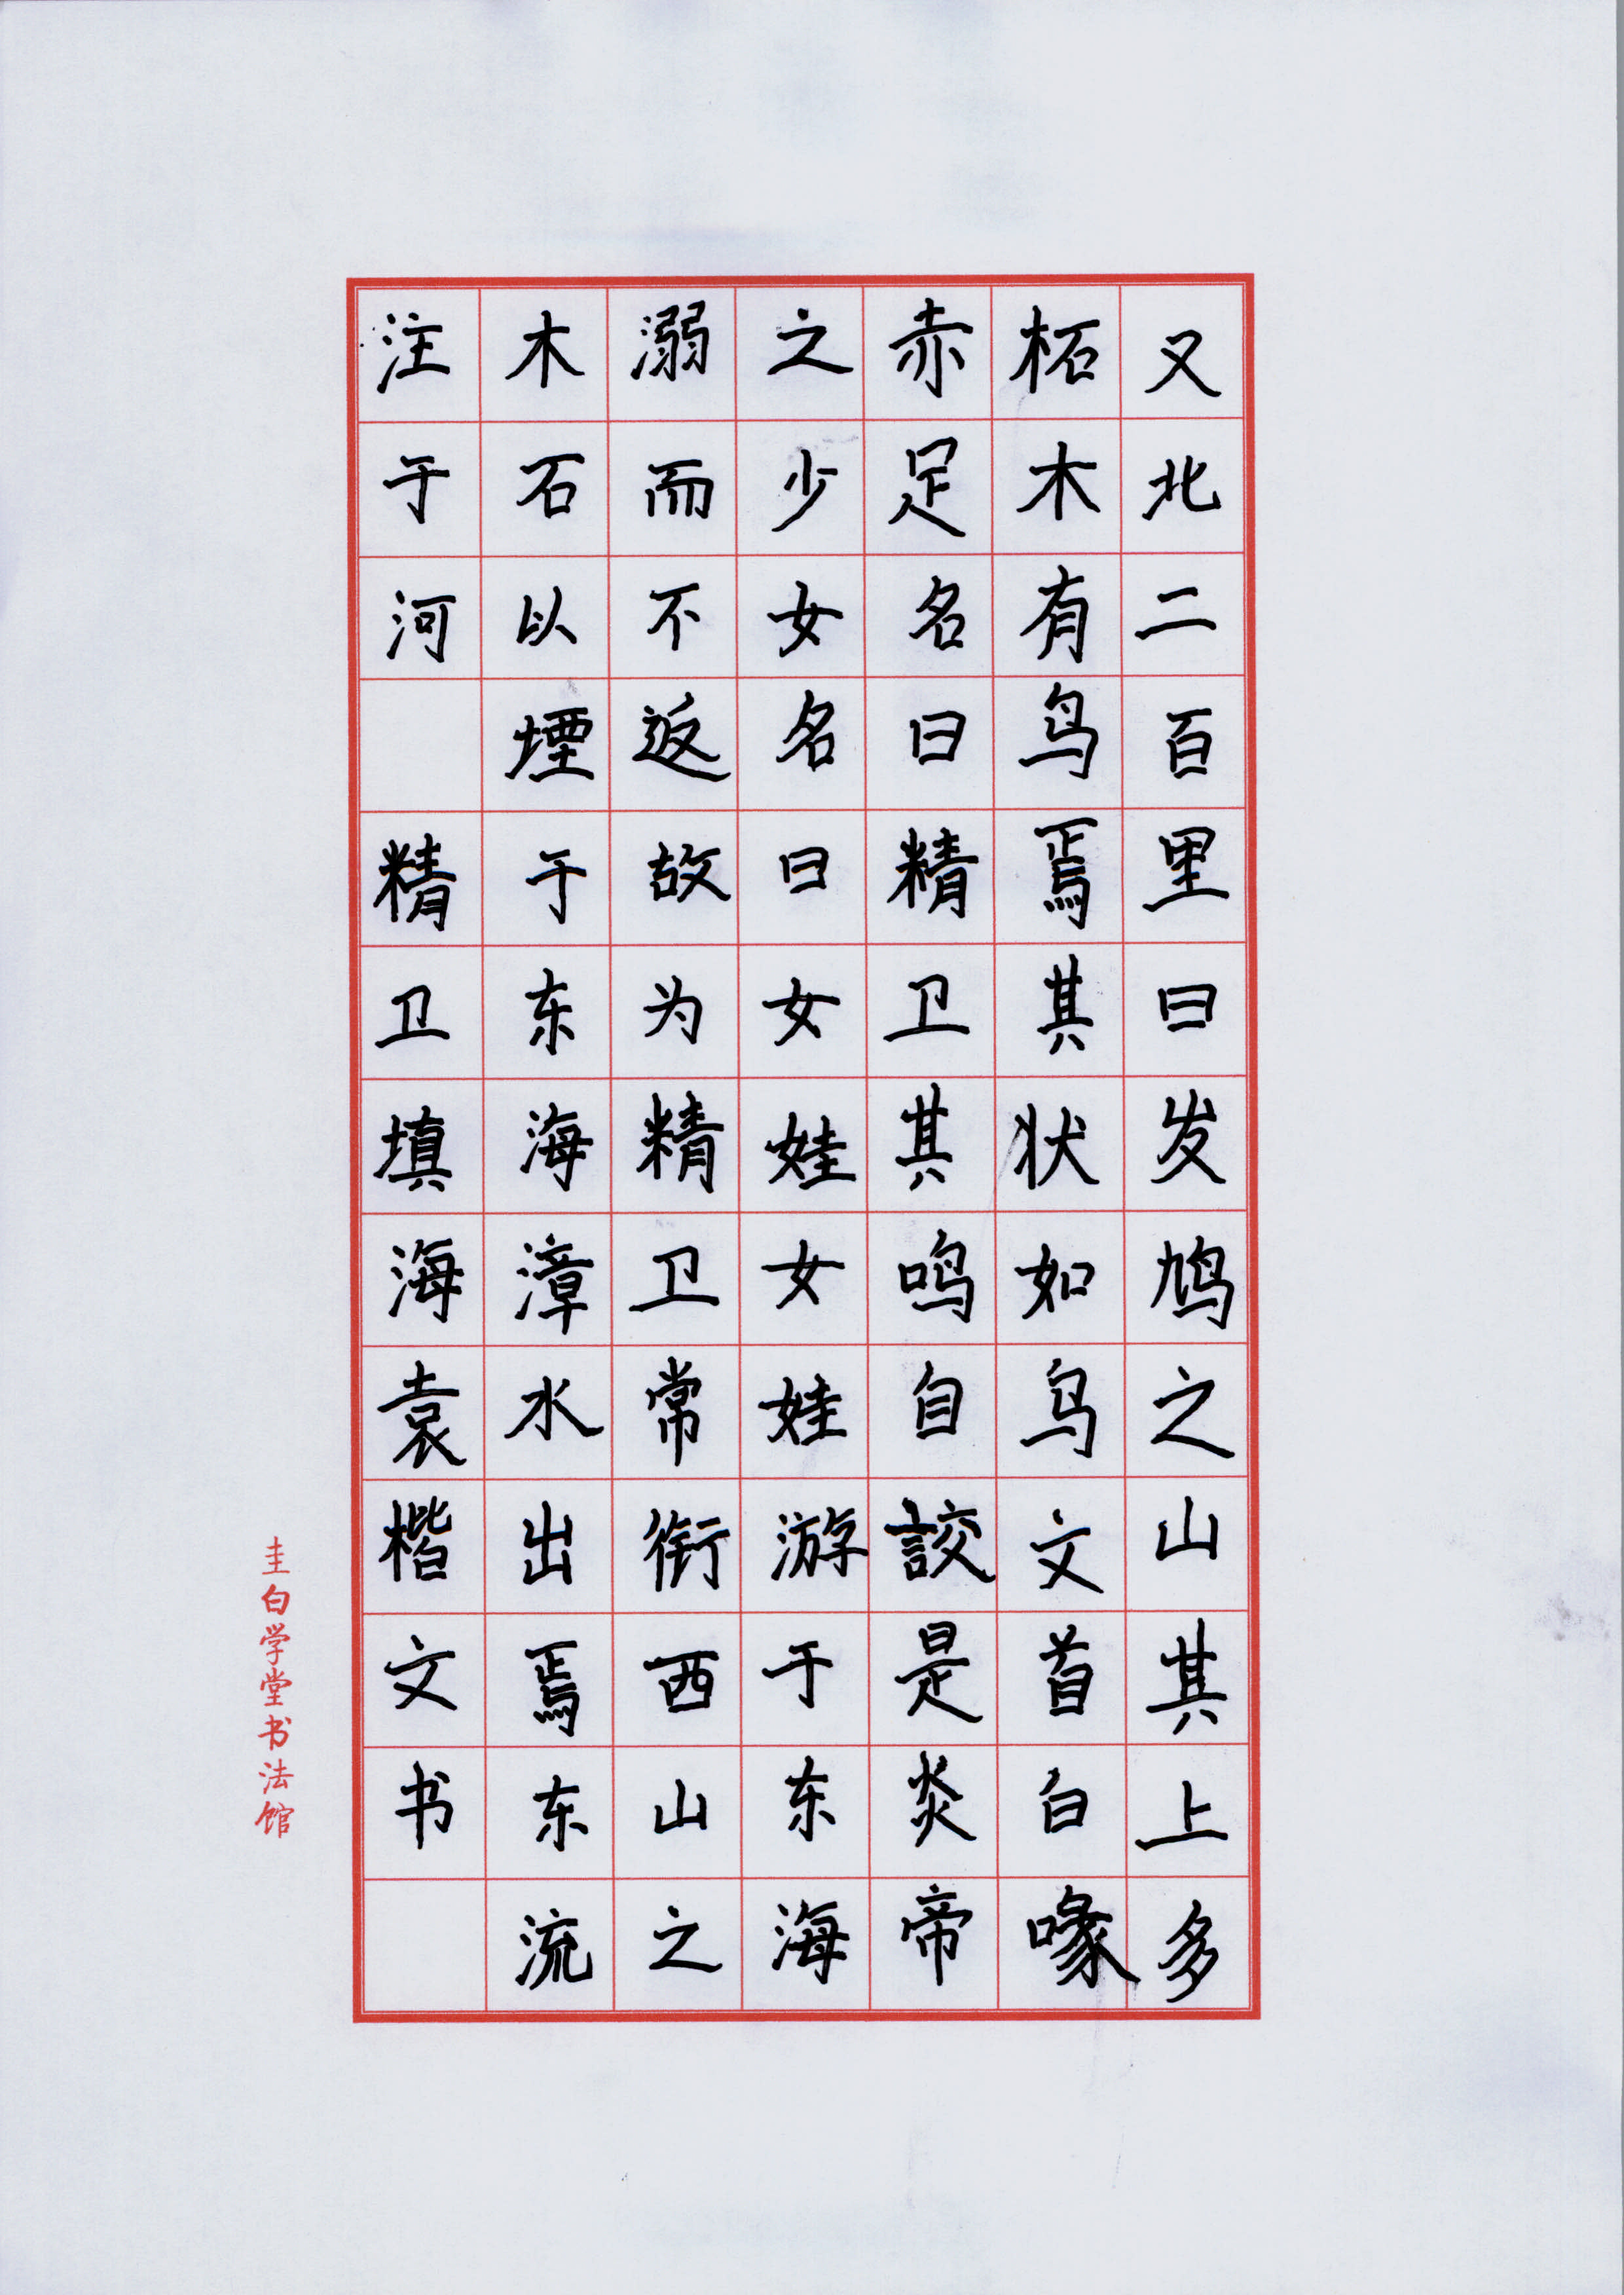 又北二百里曰发鸠之山其上多
柘木有鸟焉其状如乌文首白喙
赤足名曰精卫其鸣自詨是炎帝
之少女名曰女娃女娃游于东海
溺而不返故为精卫常衔西山之
木石以堙于东海漳水出焉东流
注于河 精卫填海袁楷文书
圭白学堂书法馆